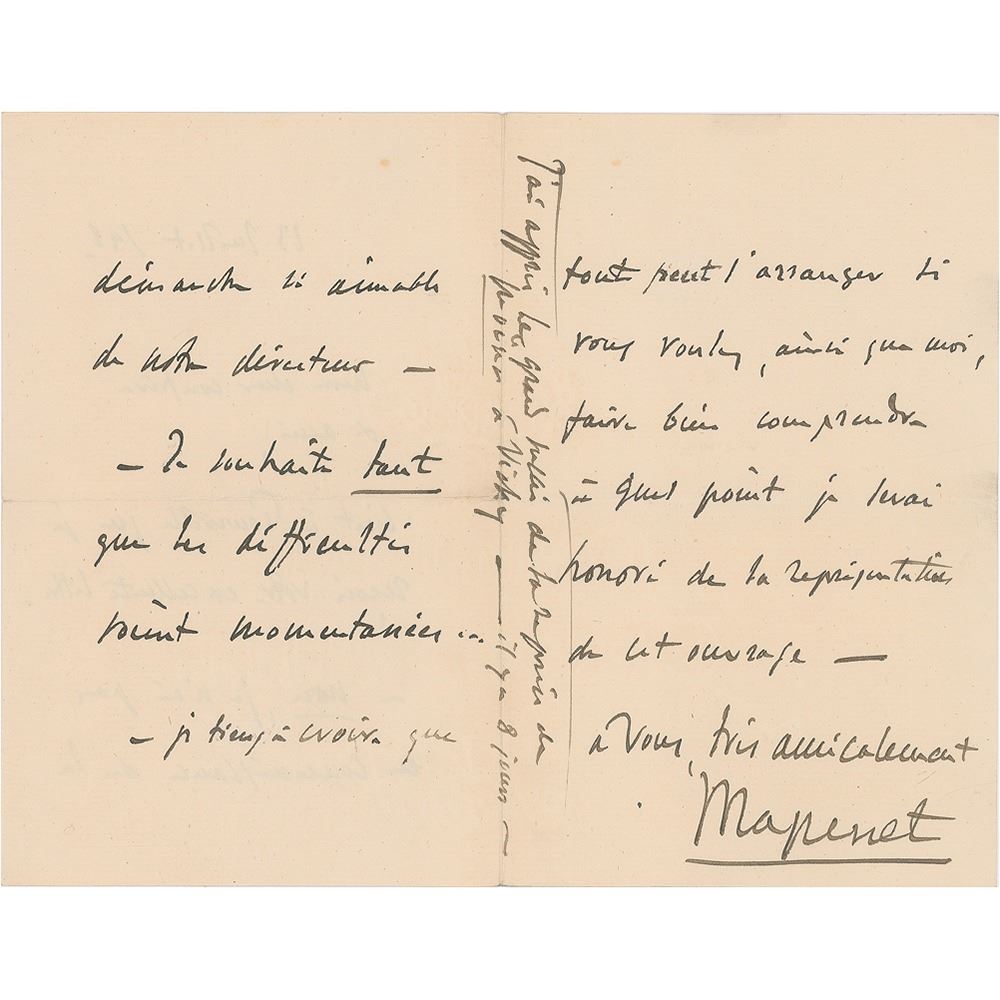 démarche si aimable
de notre directeur —
— Je souhaite tant
que les difficultés
soient momentanées...
— je tiens à croire que
tout peut s'arranger si
vous voulez, ainsi que moi,
faire bien comprendre
à quel point je serai
honoré de la représentation
de cet ouvrage —
à Vous, très amicalement
Massenet
J'ai appris le grand succès de la reprise de
à Vichy — il y a 8 jours —